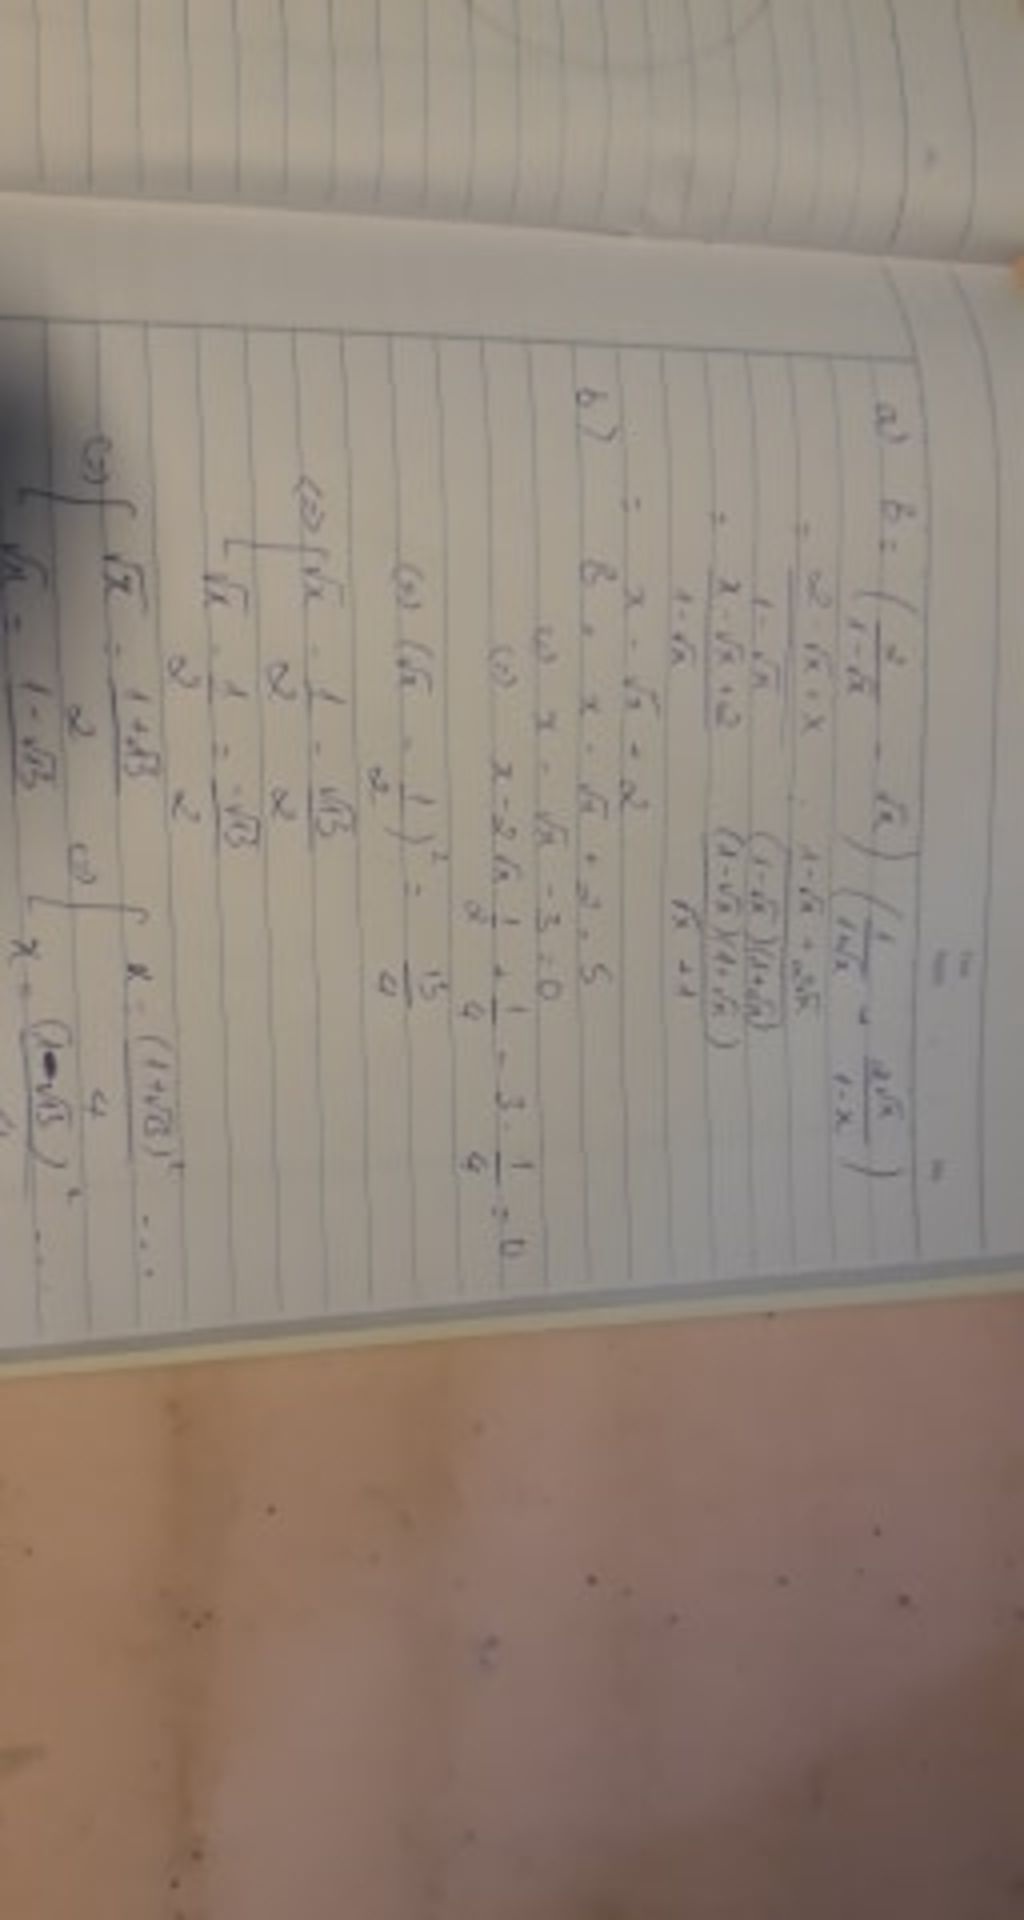 a) B = (2/(1-√x) - √x) (1/(1+√x) + 2√x/(1-x))
= (2-√x+x)/(1-√x) . (1-√x+2√x)/((1-√x)(1+√x))
= (x-√x+2)/(1-√x) (1-√x)(1+√x)/(√x+1)
= x-√x+2
b) B = x-√x+2=5
(=) x-√x-3=0
(=) x-2√x 1/2 + 1/4 - 3 - 1/4 = 0
(=) (√x - 1/2)² = 13/4
(=) [ √x - 1/2 = √13/2
√x - 1/2 = -√13/2
(=) [ √x = (1+√13)/2 (=) [ x = (1+√13)²/4 ...
√x = (1-√13)/2 x = (1-√13)² ...